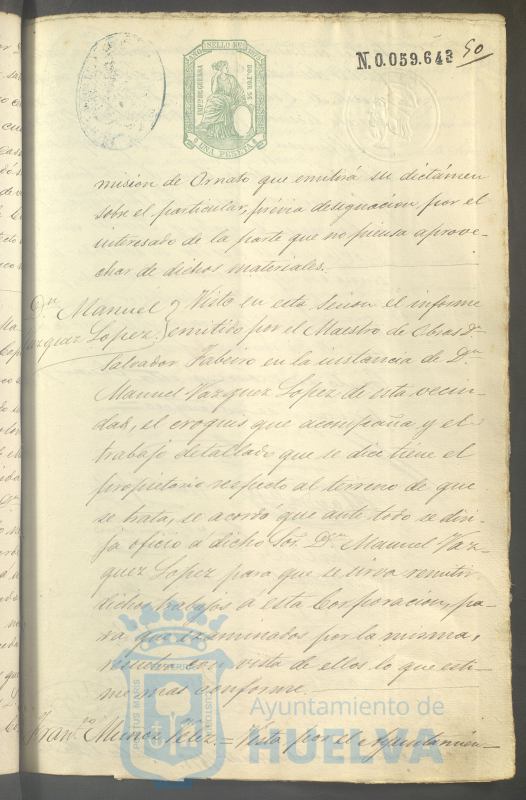 N. 0.059.643 50
SELLO
UNA PESETA
mision de Ornato que emitirá su dictámen
sobre el particular, prévia designacion, por el
interesado de la parte que no piensa aprove-
char de dichos materiales.
Dn. Manuel Visto en esta sesion el informe
Vazquez Lopez. emitido por el Maestro de Obras Dn.
Salvador en la instancia de Dn.
Manuel Vazquez Lopez de esta vecin-
dad, el croquis que acompaña y el
trabajo detallado que se dice tiene el
propietario respecto al terreno de que
se trata, se acordó que ante todo se diri-
ja oficio á dicho Sor. Dn. Manuel Vaz-
quez Lopez para que se sirva remitir
dichos trabajos á esta Corporacion, pa-
ra que examinados por la misma,
resuelva con vista de ellos lo que esti-
me mas conforme.
Franco. Muñoz Velez.= Vista por el Ayuntamien-
Ayuntamiento de
HUELVA
PORTUS MARIS